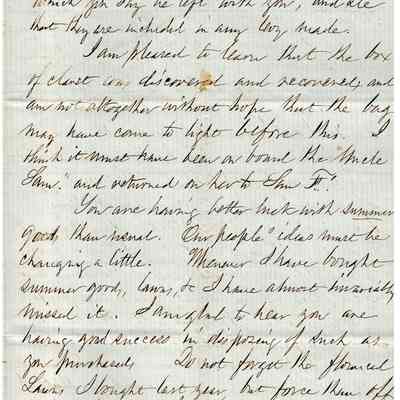 which you say he left with you, and see
that they are included in any levy made.
I am pleased to learn that the box
of claret was discovered and recovered, and
am not altogether without hope that the bag
may have come to light before this. I
think it must have been on board the "Uncle
Sam." and returned on her to San F.
You are having better luck with summer
goods than usual. Our people's ideas must be
changing a little. Whenever I have bought
summer goods, lawns, &c I have almost invariably
missed it. I am glad to hear you are
having good success in disposing of such as
you purchased. Do not forget the
Lawns I bought last year, but force them off